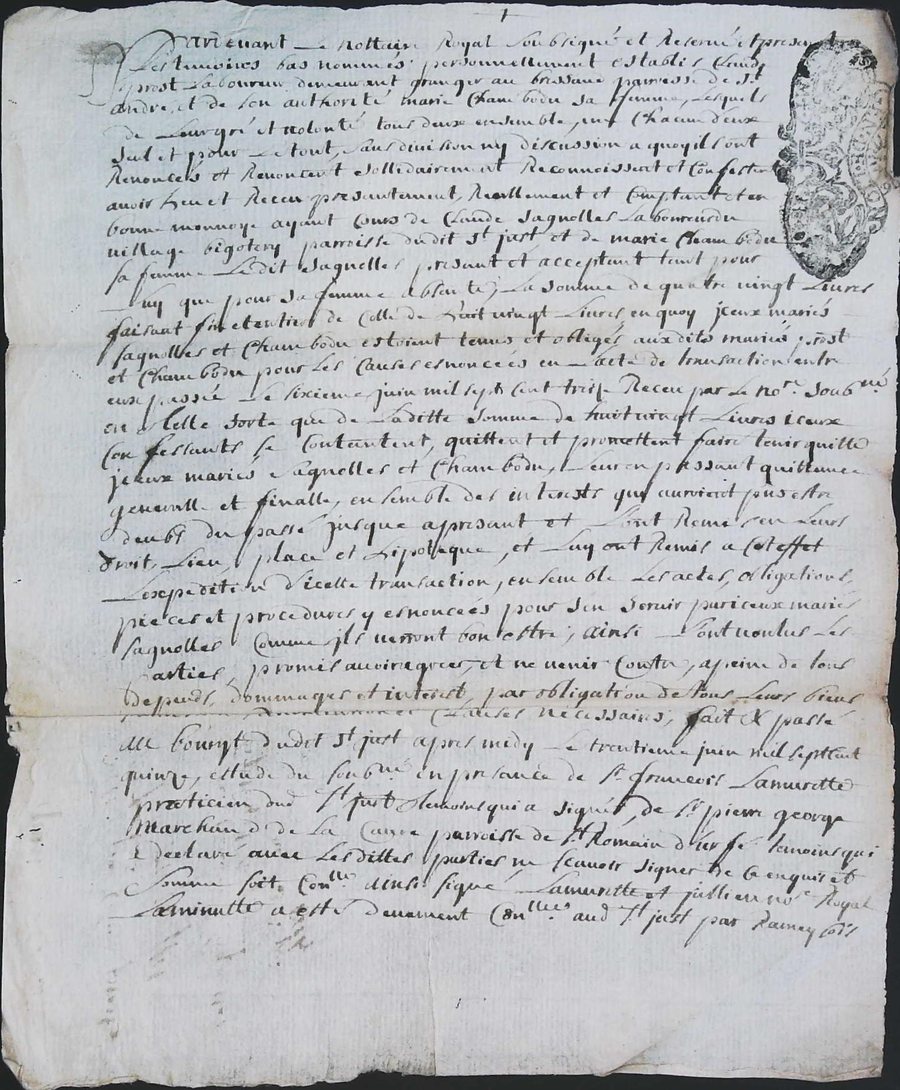 +
Pardevant Le nottaire Royal Soubsigné et Reservé et presents
Les temoins bas nommés personnellement establis
prost Laboureur demeurant granger au bressane parroisse de St
andre, et de son authorité marie Chambodu sa femme, Lesquels
de Leur gré et volonté tous deux ensemble, un Chacun deux
seul et pour Le tout, sans division ny discussion a quoy ils ont
Renoncés et Renoncent sollidairement Reconnoissent et Confessent
avoir heu et Receu presantement, Reellement et Comptant et en
bonne monnoye ayant Cours de Claude sagnolles Laboureur du
village bigotery parroisse dudit St just et de marie Chambodu
sa femme Ledit sagnolles presant et acceptant tant pour
luy que pour sa femme absente, La somme de quatre vingt Livres
faisant fin et entier de Celle de huit vingt Livres, en quoy jceux mariés
sagnolles et Chambodu estoient tenus et obligés auxdits mariés prost
et Chambodu pour Les Causes esnoncées en Lacte de transaction entre
eux passée Le sixieme juin mil sept Cent treize Receu par Le nore. soubné.
en telle sorte que de Laditte somme de huit vingt Livres iceux
Confessants se Contentent, quittent et promettent faire tenir quitte
jceux mariés sagnolles et Chambodu, Leur en passant quittance
generalle et finalle, ensemble des interests qui auroient pus estre
deubs du passé jusque a presant et Lont Remis en Leurs
droit, Lieu, place et hipoteque, et Luy ont Remis a Cet effet
Lexpedition dicelle transaction, ensemble Les actes, obligations,
pieces et procedures y esnoncées pour sen servir par iceux mariés
sagnolles Comme jls verront bon estre, ainsi Lont voulus Les
parties, promis avoir agreer, et ne venir Contre, a peine de tous
depends, dommages et interest par obligation de tous Leurs biens
Clauses necessaires, fait & passé
au bourgt dudit St just apres midy Le trentieme juin mil sept Cent
quinze, estude du soubné en presance de Sr. francois Lamurette
praticien dud St just temoins qui a signé, de Sr pierre george
Marchand de La parroisse de St Romain d'urfé temoins qui
a declaré avec Lesdittes parties ne scavoir signer de Ce enquis et
Somme soit Conlle. ainsi signé Lamurette et jullien nore Royal
La minutte a esté deuement Conllée. aud St just par Ramey